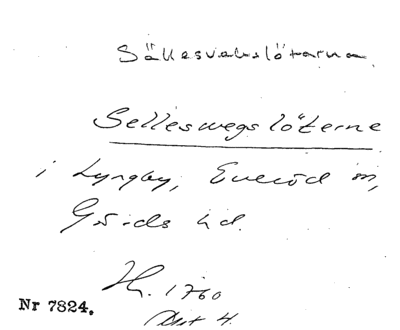 Sällesvekslötarna.
Selleswegslöterne
i Lyngby, Everöd m,
Gärds hd.
Hh. 1760
Akt 4.
Nr 7824.